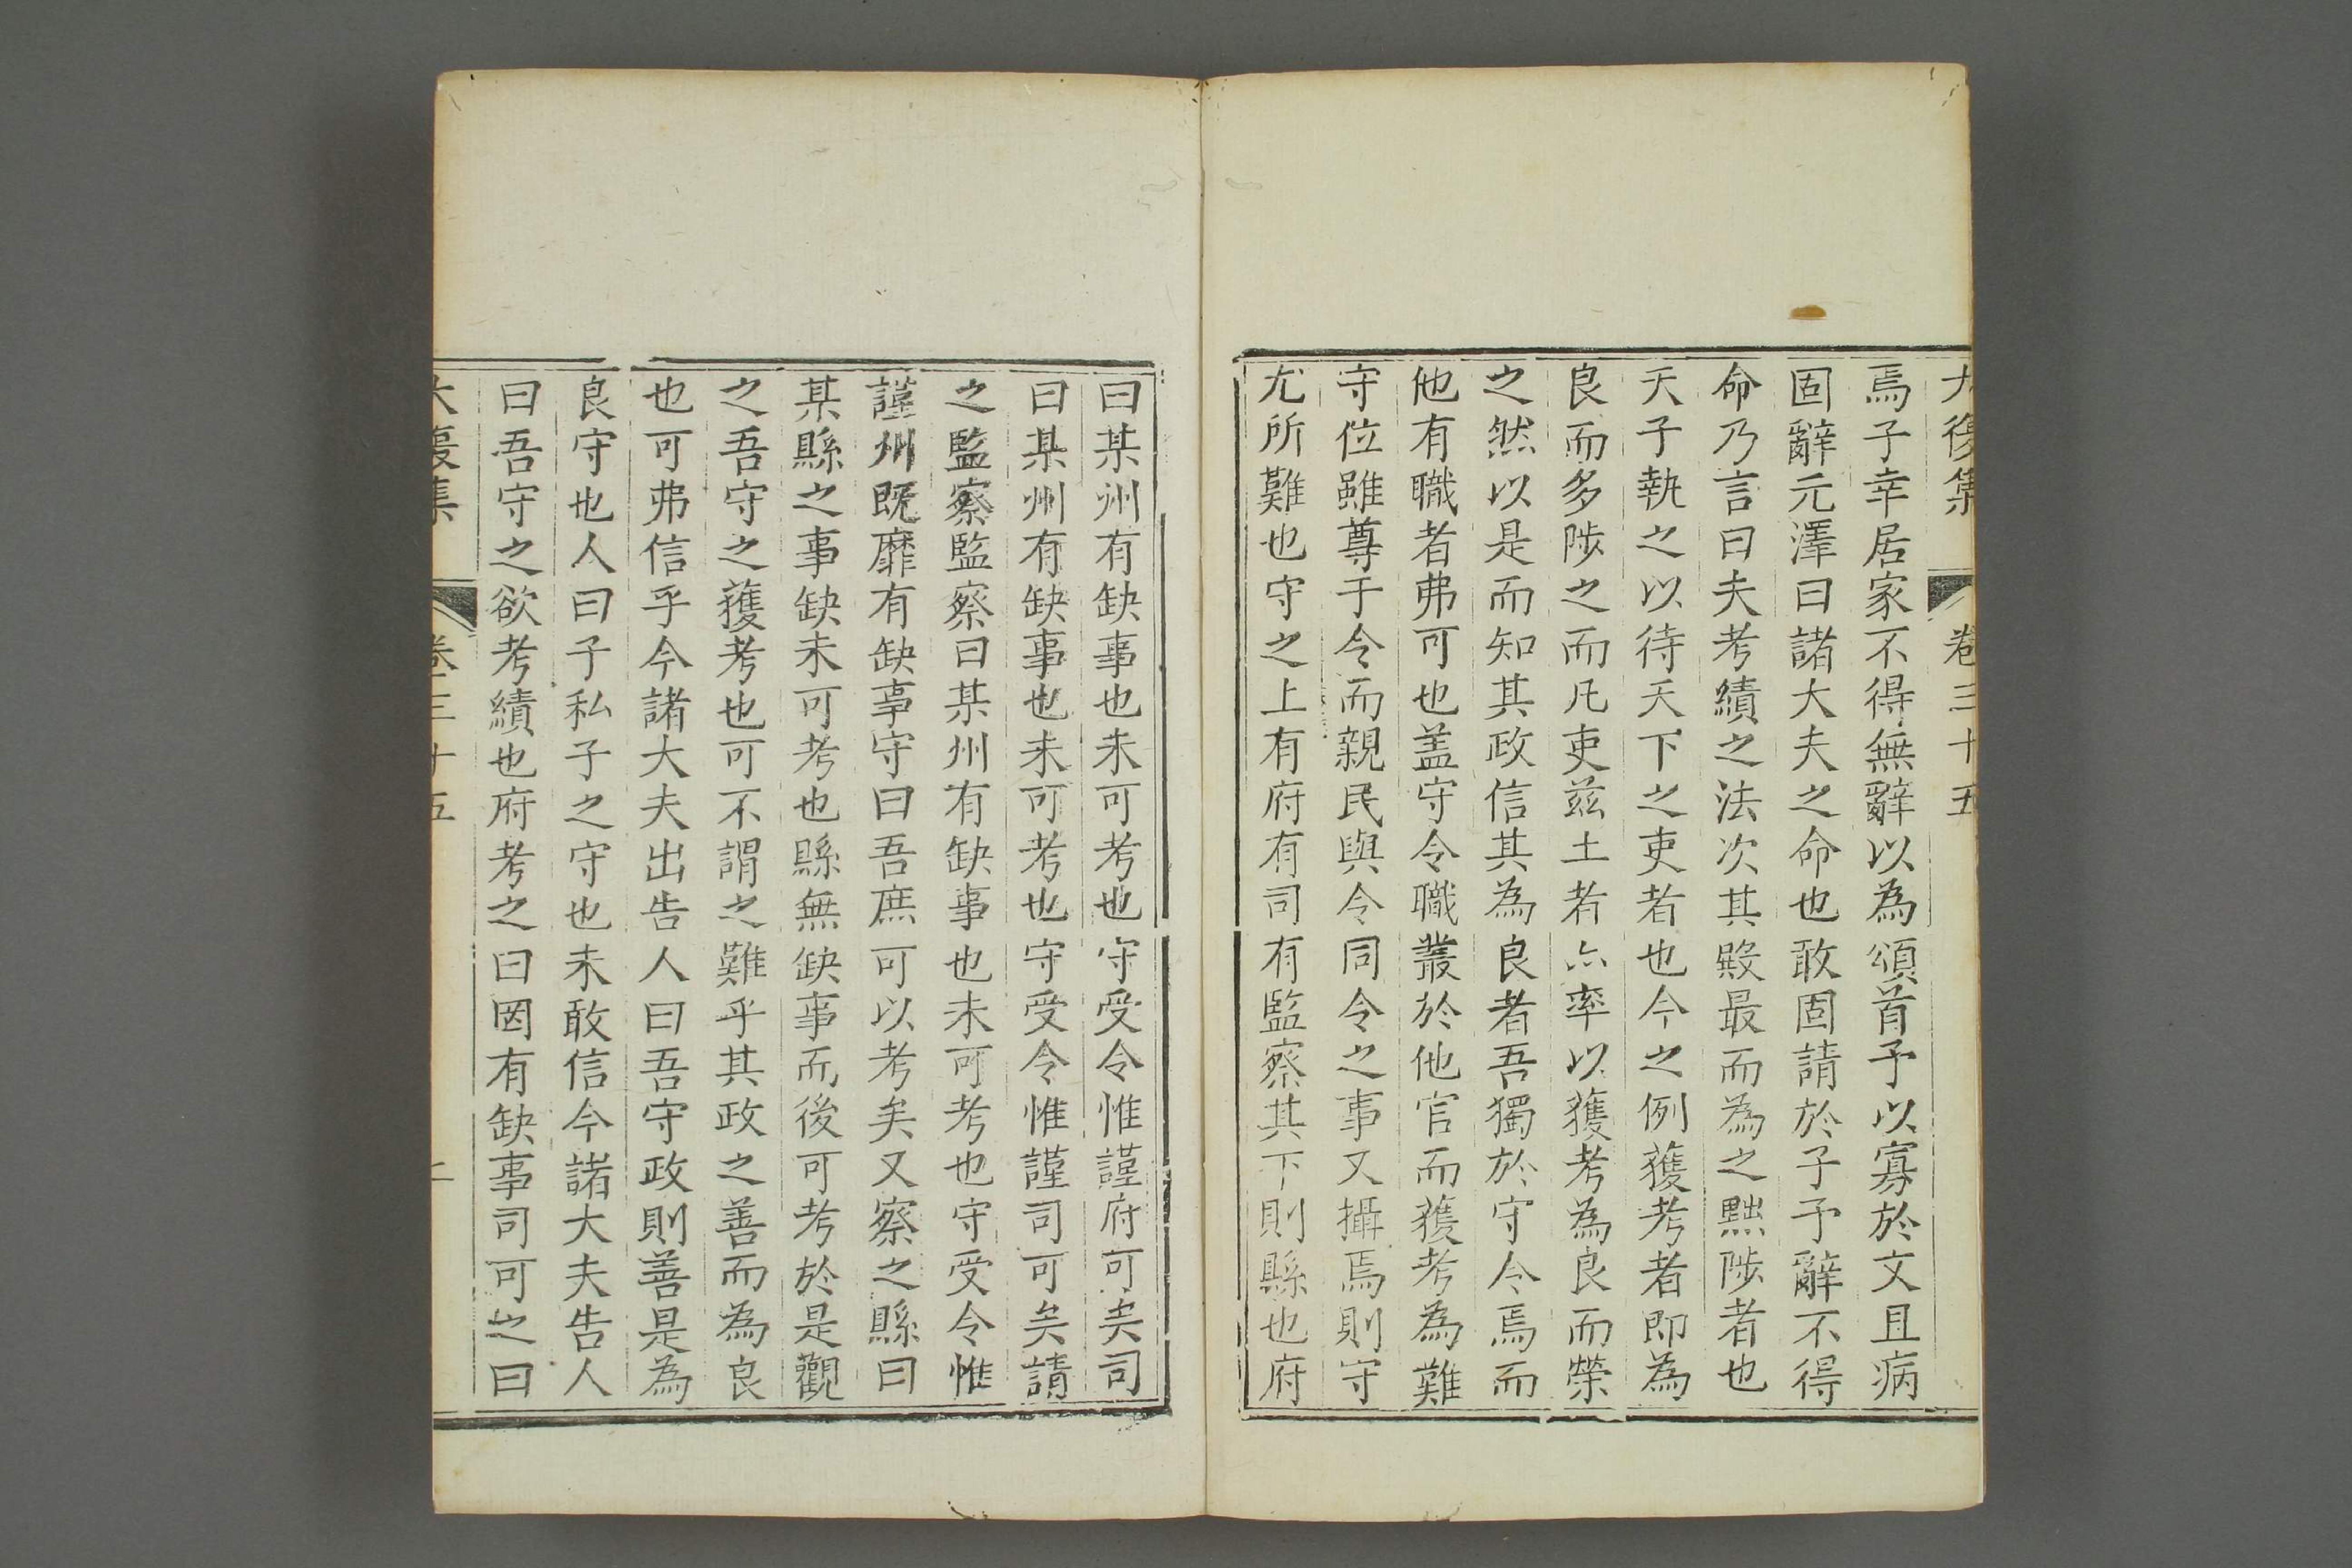 大復集 卷三十五
焉子幸居家不得無辭以為頌首予以寡於文且病
固辭元澤曰諸大夫之命也敢固請於子予辭不得
命乃言曰夫考績之法次其殿最而為之黜陟者也
天子執之以待天下之吏者也今之例獲考者即為
良而多陟之而凡吏茲土者亦率以獲考為良而榮
之然以是而知其政信其為良者吾獨於守令焉而
他有職者弗可也盖守令職叢於他官而獲考為難
守位雖尊于令而親民與令同令之事又攝焉則守
尤所難也守之上有府有司有監察其下則縣也府
曰某州有缺事也未可考也守受令惟謹府可矣司
曰某州有缺事也未可考也守受令惟謹司可矣請
之監察監察曰某州有缺事也未可考也守受令惟
謹州既靡有缺事守曰吾庶可以考矣又察之縣曰
某縣之事缺未可考也縣無缺事而後可考於是觀
之吾守之獲考也可不謂之難乎其政之善而為良
也可弗信乎今諸大夫出告人曰吾守政則善是為
良守也人曰子私子之守也未敢信今諸大夫告人
曰吾守之欲考績也府考之曰罔有缺事司可之曰
大復集 卷三十五 二